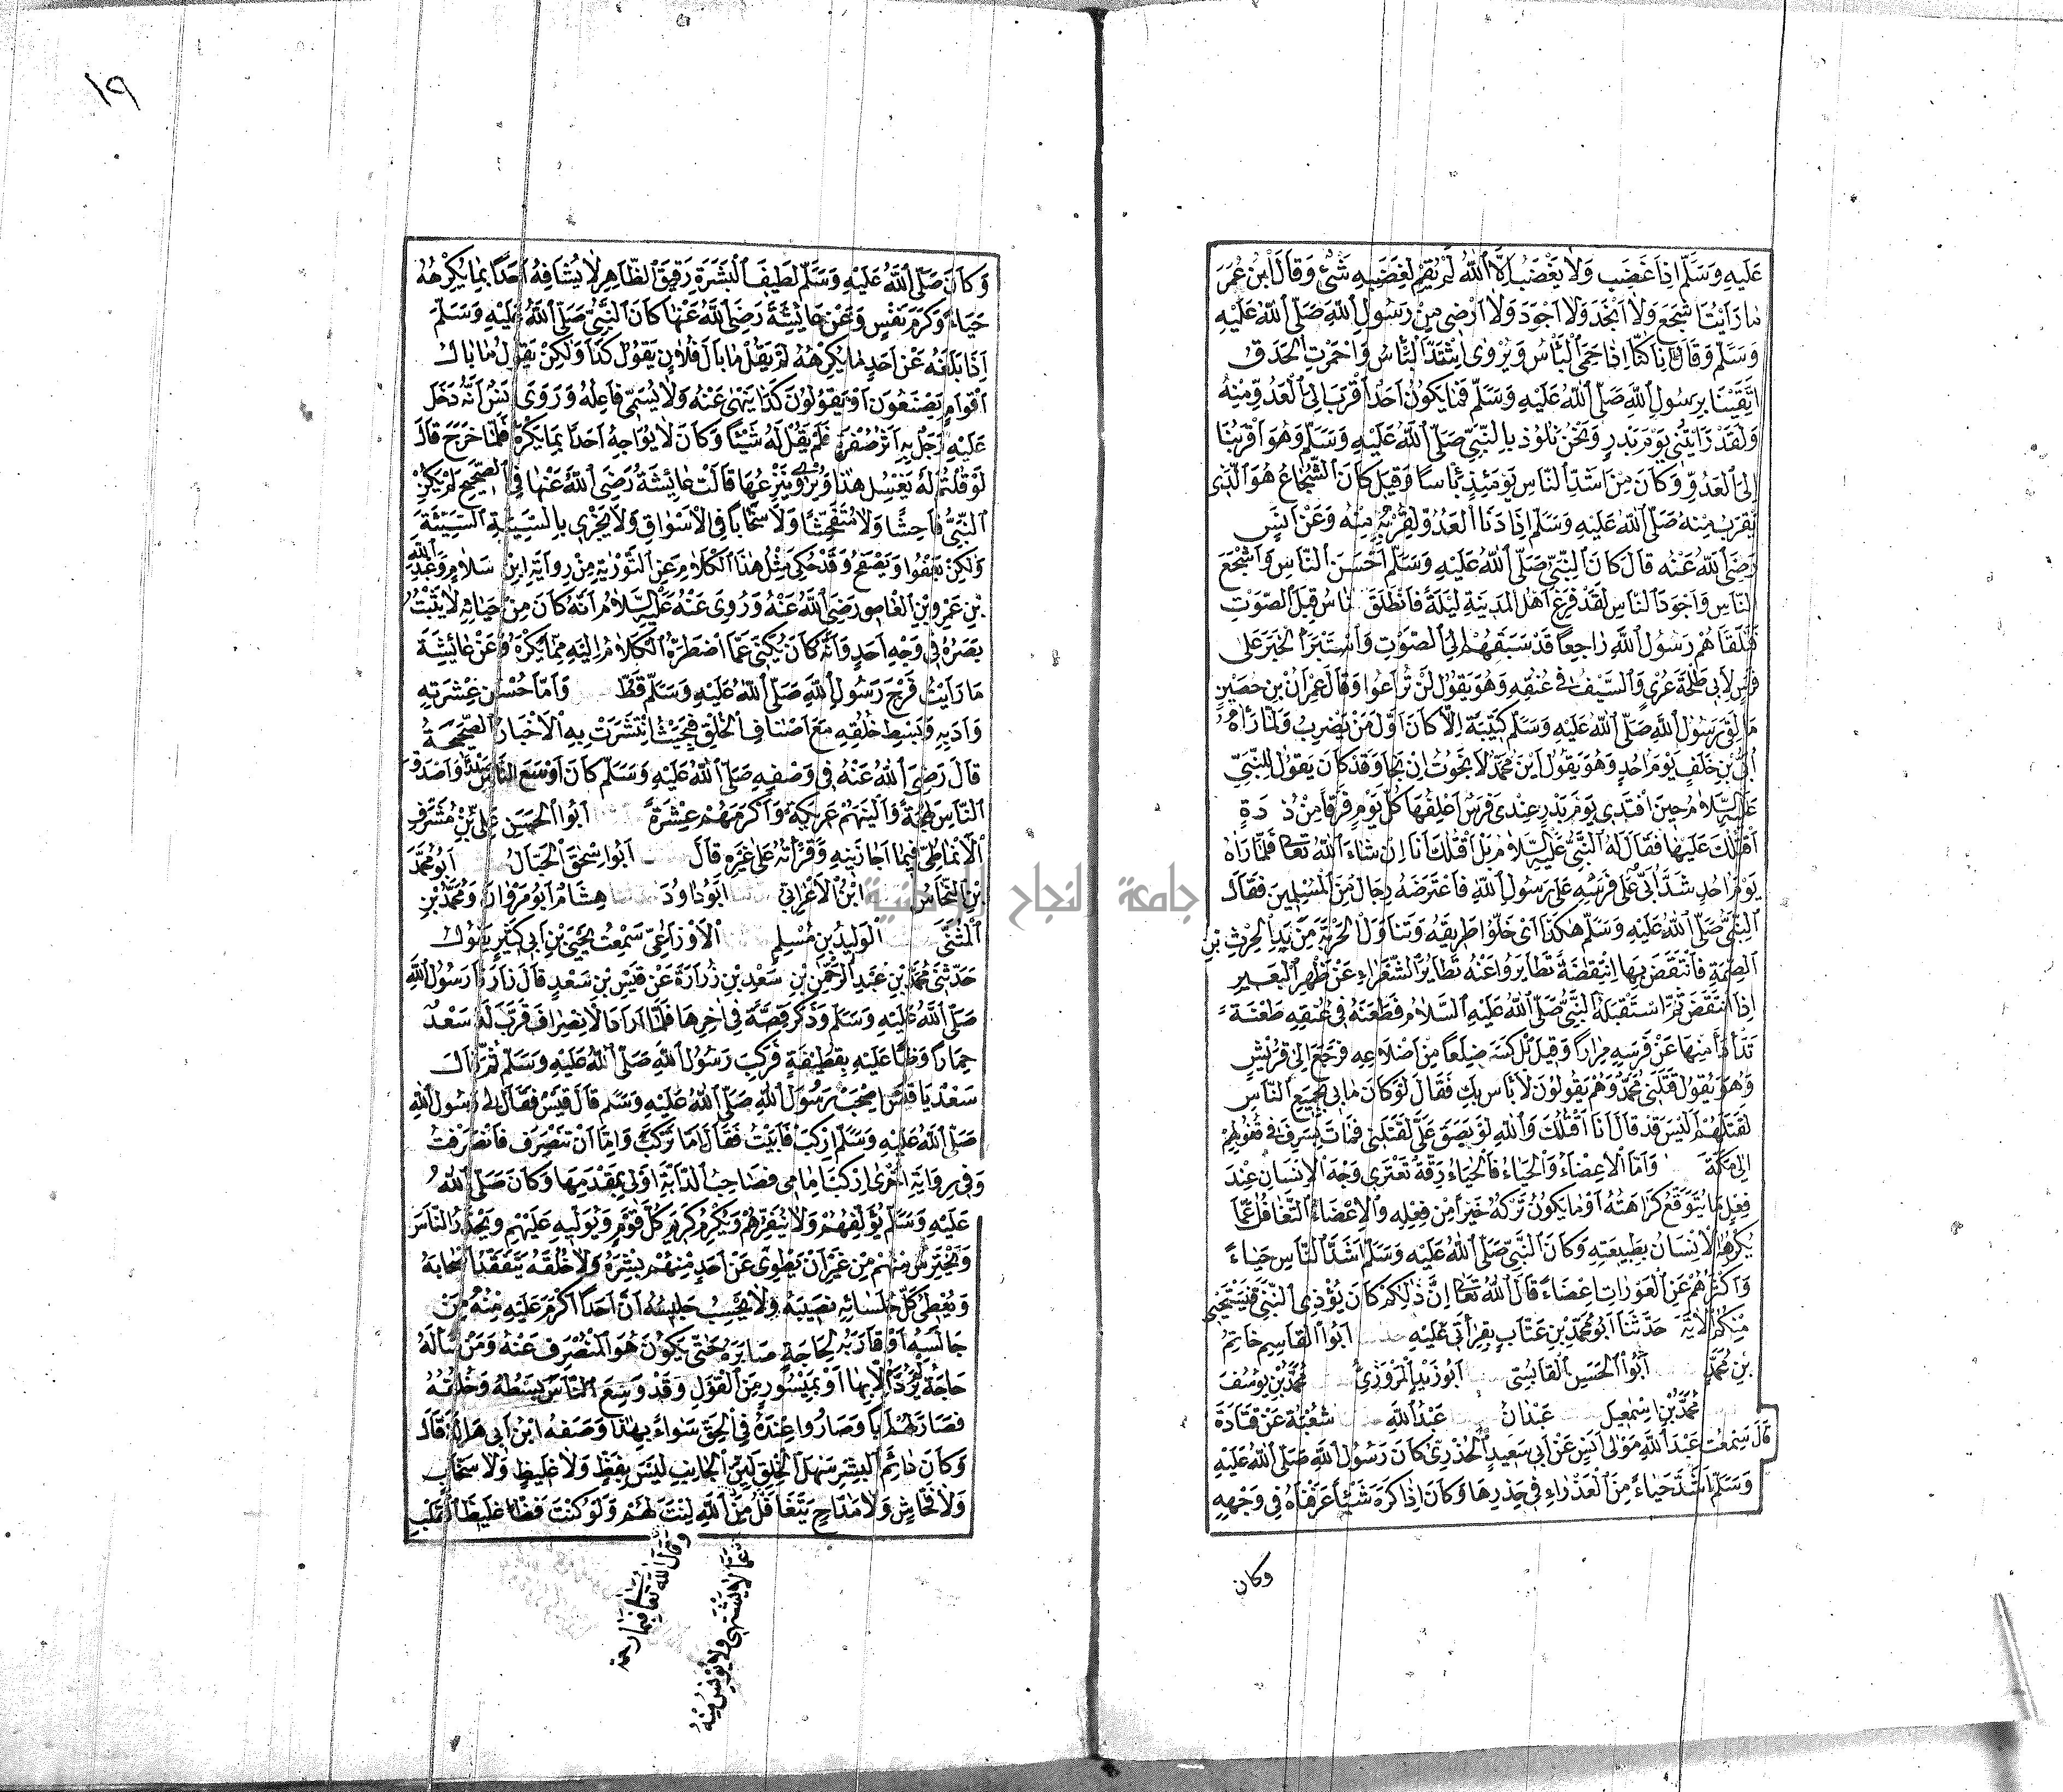 عَلَيْهِ وَسَلَّمَ اِذَا غَضِبَ وَلَا يَغْضَبُ اِلَّا لِلّٰهِ لَمْ يَقُمْ لِغَضَبِهِ شَئٌ وَقَالَ ابْنُ عُمَرَ
مَا رَاَيْتُ اَشْجَعَ وَلَا اَنْجَدَ وَلَا اَجْوَدَ وَلَا اَرْضٰى مِنْ رَسُولِ اللّٰهِ صَلَّى اللّٰهُ عَلَيْهِ
وَسَلَّمَ وَقَالَ اِنَّا كُنَّا اِذَا حَمِىَ الْبَأْسُ وَيُرْوٰى اِشْتَدَّ الْبَأْسُ وَاحْمَرَّتِ الْحَدَقُ
اِتَّقَيْنَا بِرَسُولِ اللّٰهِ صَلَّى اللّٰهُ عَلَيْهِ وَسَلَّمَ فَمَا يَكُونُ اَحَدٌ اَقْرَبَ اِلَى الْعَدُوِّ مِنْهُ
وَلَقَدْ رَاَيْتُنِى يَوْمَ بَدْرٍ وَنَحْنُ نَلُوذُ بِالنَّبِىِّ صَلَّى اللّٰهُ عَلَيْهِ وَسَلَّمَ وَهُوَ اَقْرَبُنَا
اِلَى الْعَدُوِّ وَكَانَ مِنْ اَشَدِّ النَّاسِ يَوْمَئِذٍ بَأْسًا وَقِيلَ كَانَ الشُّجَاعُ هُوَ الَّذِى
يَقْرُبُ مِنْهُ صَلَّى اللّٰهُ عَلَيْهِ وَسَلَّمَ اِذَا دَنَا الْعَدُوُّ لِقُرْبِهِ مِنْهُ وَعَنْ اَنَسٍ
رَضِىَ اللّٰهُ عَنْهُ قَالَ كَانَ النَّبِىُّ صَلَّى اللّٰهُ عَلَيْهِ وَسَلَّمَ اَحْسَنَ النَّاسِ وَاَشْجَعَ
النَّاسِ وَاَجْوَدَ النَّاسِ لَقَدْ فَزِعَ اَهْلُ الْمَدِينَةِ لَيْلَةً فَانْطَلَقَ نَاسٌ قِبَلَ الصَّوْتِ
فَتَلَقَّاهُمْ رَسُولُ اللّٰهِ رَاجِعًا قَدْ سَبَقَهُمْ اِلَى الصَّوْتِ وَاسْتَبْرَأَ الْخَبَرَ عَلٰى
فَرَسٍ لِاَبِى طَلْحَةَ عُرْىٍ وَالسَّيْفُ فِى عُنُقِهِ وَهُوَ يَقُولُ لَنْ تُرَاعُوا وَقَالَ عِمْرَانُ بْنُ حُصَيْنٍ
مَا لَقِىَ رَسُولُ اللّٰهِ صَلَّى اللّٰهُ عَلَيْهِ وَسَلَّمَ كَتِيبَةً اِلَّا كَانَ اَوَّلَ مَنْ يَضْرِبُ وَلَمَّا رَاٰهُ
اُبَىُّ بْنُ خَلَفٍ يَوْمَ اُحُدٍ وَهُوَ يَقُولُ اَيْنَ مُحَمَّدٌ لَا نَجَوْتُ اِنْ نَجَا وَقَدْ كَانَ يَقُولُ لِلنَّبِىِّ
عَلَيْهِ السَّلَامُ حِينَ افْتَدٰى يَوْمَ بَدْرٍ عِنْدِى فَرَسٌ اَعْلِفُهَا كُلَّ يَوْمٍ فَرَقًا مِنْ ذُ رَةٍ
اَقْتُلُكَ عَلَيْهَا فَقَالَ لَهُ النَّبِىُّ عَلَيْهِ السَّلَامُ بَلْ اَقْتُلُكَ اَنَا اِنْ شَاءَ اللّٰهُ تَعَا فَلَمَّا رَاٰهُ
يَوْمَ اُحُدٍ شَدَّ اُبَىٌّ عَلَى فَرَسِهِ عَلَى رَسُولِ اللّٰهِ فَاعْتَرَضَهُ رِجَالٌ مِنَ الْمُسْلِمِينَ فَقَالَ
النَّبِىُّ صَلَّى اللّٰهُ عَلَيْهِ وَسَلَّمَ هٰكَذَا اَىْ خَلُّوا طَرِيقَهُ وَتَنَاوَلَ الْحَرْبَةَ مِنْ يَدِ الْحٰرِثِ بْنِ
الصِّمَّةِ فَانْتَفَضَ بِهَا اِنْتِفَاضَةً تَطَايَرُوا عَنْهُ تَطَايُرَ الشَّعْرَاءِ عَنْ ظَهْرِ الْبَعِيرِ
اِذَا انْتَفَضَ ثُمَّ اسْتَقْبَلَهُ النَّبِىُّ صَلَّى اللّٰهُ عَلَيْهِ السَّلَامُ فَطَعَنَهُ فِى عُنُقِهِ طَعْنَةً
تَدَأْدَأَ مِنْهَا عَنْ فَرَسِهِ مِرَارًا وَقِيلَ بَلْ كَسَرَ ضِلَعًا مِنْ اَضْلَاعِهِ فَرَجَعَ اِلٰى قُرَيْشٍ
وَهُوَ يَقُولُ قَتَلَنِى مُحَمَّدٌ وَهُمْ يَقُولُونَ لَا بَأْسَ بِكَ فَقَالَ لَوْ كَانَ مَا بِى بِجَمِيعِ النَّاسِ
لَقَتَلَهُمْ اَلَيْسَ قَدْ قَالَ اَنَا اَقْتُلُكَ وَاللّٰهِ لَوْ بَصَقَ عَلَىَّ لَقَتَلَنِى فَمَاتَ بِسَرِفَ فِى قُفُولِهِمْ
اِلٰى مَكَّةَ وَاَمَّا الْاِغْضَاءُ وَالْحَيَاءُ فَالْحَيَاءُ رِقَّةٌ تَعْتَرِى وَجْهَ الْاِنْسَانِ عِنْدَ
فِعْلِ مَا يُتَوَقَّعُ كَرَاهَتُهُ اَوْ مَا يَكُونُ تَرْكُهُ خَيْرًا مِنْ فِعْلِهِ وَالْاِغْضَاءُ التَّغَافُلُ عَمَّا
يَكْرَهُ الْاِنْسَانُ بِطَبِيعَتِهِ وَكَانَ النَّبِىُّ صَلَّى اللّٰهُ عَلَيْهِ وَسَلَّمَ اَشَدَّ النَّاسِ حَيَاءً
وَاَكْثَرَهُمْ عَنِ الْعَوْرَاتِ اِغْضَاءً قَالَ اللّٰهُ تَعَا اِنَّ ذٰلِكُمْ كَانَ يُؤْذِى النَّبِىَّ فَيَسْتَحْيِى
مِنْكُمْ الْاٰيَةَ حَدَّثَنَا اَبُو مُحَمَّدِ بْنِ عَتَّابٍ بِقِرَاءَتِى عَلَيْهِ اَبُوا الْقَاسِمِ حَاتِمُ
بْنُ مُحَمَّدٍ اَبُوا الْحَسَنِ الْقَابِسِىُّ اَبُو زَيْدٍ الْمَرْوَزِىُّ مُحَمَّدُ بْنُ يُوسُفَ
مُحَمَّدُ بْنُ اِسْمٰعِيلَ عَبْدَانُ عَبْدُ اللّٰهِ شُعْبَةُ عَنْ قَتَادَةَ
قَالَ سَمِعْتُ عَبْدَ اللّٰهِ مَوْلٰى اَنَسٍ عَنْ اَبِى سَعِيدٍ الْخُدْرِىِّ كَانَ رَسُولُ اللّٰهِ صَلَّى اللّٰهُ عَلَيْهِ
وَسَلَّمَ اَشَدَّ حَيَاءً مِنَ الْعَذْرَاءِ فِى خِدْرِهَا وَكَانَ اِذَا كَرِهَ شَيْئًا عَرَفْنَاهُ فِى وَجْهِهِ
وكان
١٩
وَكَانَ صَلَّى اللّٰهُ عَلَيْهِ وَسَلَّمَ لَطِيفَ الْبَشَرَةِ رَقِيقَ الظَّاهِرِ لَا يُشَافِهُ اَحَدًا بِمَا يَكْرَهُهُ
حَيَاءً وَكَرَمَ نَفْسٍ وَعَنْ عَائِشَةَ رَضِىَ اللّٰهُ عَنْهَا كَانَ النَّبِىُّ صَلَّى اللّٰهُ عَلَيْهِ وَسَلَّمَ
اِذَا بَلَغَهُ عَنْ اَحَدٍ مَا يَكْرَهُهُ لَمْ يَقُلْ مَا بَالُ فُلَانٍ يَقُولُ كَذَا وَلٰكِنْ يَقُولُ مَا بَالُ
اَقْوَامٍ يَصْنَعُونَ اَوْ يَقُولُونَ كَذَا يَنْهٰى عَنْهُ وَلَا يُسَمِّى فَاعِلَهُ وَرَوٰى اَنَسٌ اَنَّهُ دَخَلَ
عَلَيْهِ رَجُلٌ بِهِ اَثَرُ صُفْرَةٍ فَلَمْ يَقُلْ لَهُ شَيْئًا وَكَانَ لَا يُوَاجِهُ اَحَدًا بِمَا يَكْرَهُ فَلَمَّا خَرَجَ قَالَ
لَوْ قُلْتُمْ لَهُ يَغْسِلُ هٰذَا وَيُرْوٰى يَنْزِعُهَا قَالَتْ عَائِشَةُ رَضِىَ اللّٰهُ عَنْهَا فِى الصَّحِيحِ لَمْ يَكُنِ
النَّبِىُّ فَاحِشًا وَلَا مُتَفَحِّشًا وَلَا سَخَّابًا فِى الْاَسْوَاقِ وَلَا يَجْزِى بِالسَّيِّئَةِ السَّيِّئَةَ
وَلٰكِنْ يَعْفُوا وَيَصْفَحُ وَقَدْ حُكِىَ مِثْلُ هٰذَا الْكَلَامِ عَنِ التَّوْرٰيةِ مِنْ رِوَايَةِ ابْنِ سَلَامٍ وَعَبْدِ اللّٰهِ
بْنِ عَمْرِو بْنِ الْعَاصِ رَضِىَ اللّٰهُ عَنْهُ وَرُوِىَ عَنْهُ عَلَيْهِ السَّلَامُ اَنَّهُ كَانَ مِنْ حَيَائِهِ لَا يُثْبِتُ
بَصَرَهُ فِى وَجْهِ اَحَدٍ وَاَنَّهُ كَانَ يُكَنِّى عَمَّا اضْطَرَّهُ الْكَلَامُ اِلَيْهِ مِمَّا يَكْرَهُ وَعَنْ عَائِشَةَ
مَا رَاَيْتُ فَرْجَ رَسُولِ اللّٰهِ صَلَّى اللّٰهُ عَلَيْهِ وَسَلَّمَ قَطُّ وَاَمَّا حُسْنُ عِشْرَتِهِ
وَاَدَبِهِ وَبَسْطِ خُلُقِهِ مَعَ اَصْنَافِ الْخَلْقِ فَبِحَيْثُ انْتَشَرَتْ بِهِ الْاَخْبَارُ الصَّحِيحَةُ
قَالَ رَضِىَ اللّٰهُ عَنْهُ فِى وَصْفِهِ صَلَّى اللّٰهُ عَلَيْهِ وَسَلَّمَ كَانَ اَوْسَعَ النَّاسِ صَدْرًا وَاَصْدَقَ
النَّاسِ لَهْجَةً وَاَلْيَنَهُمْ عَرِيكَةً وَاَكْرَمَهُمْ عِشْرَةً اَبُوا الْحَسَنِ عَلِىُّ بْنُ مُشَرَّفٍ
الْاَنْمَاطِىُّ فِيمَا اَجَازَنِيهِ وَقَرَأْتُهُ عَلَى غَيْرِهِ قَالَ اَبُوا اِسْحٰقَ الْحَبَّالُ اَبُو مُحَمَّدٍ
بْنُ النَّحَّاسِ ابْنُ الْاَعْرَابِى اَبُو دَاوُدَ هِشَامٌ اَبُو مَرْوَانَ وَمُحَمَّدُ بْنُ
الْمُثَنّٰى الْوَلِيدُ بْنُ مُسْلِمٍ الْاَوْزَاعِىُّ سَمِعْتُ يَحْيَى بْنَ اَبِى كَثِيرٍ يَقُولُ
حَدَّثَنِى مُحَمَّدُ بْنُ عَبْدِ الرَّحْمٰنِ بْنِ سَعْدِ بْنِ زُرَارَةَ عَنْ قَيْسِ بْنِ سَعْدٍ قَالَ زَارَنَا رَسُولُ اللّٰهِ
صَلَّى اللّٰهُ عَلَيْهِ وَسَلَّمَ وَذَكَرَ قِصَّةً فِى اٰخِرِهَا فَلَمَّا اَرَادَ الْاِنْصِرَافَ قَرَّبَ لَهُ سَعْدٌ
حِمَارًا وَطَّأَ عَلَيْهِ بِقَطِيفَةٍ فَرَكِبَ رَسُولُ اللّٰهِ صَلَّى اللّٰهُ عَلَيْهِ وَسَلَّمَ ثُمَّ قَالَ
سَعْدٌ يَا قَيْسُ اصْحَبْ رَسُولَ اللّٰهِ صَلَّى اللّٰهُ عَلَيْهِ وَسَلَّمَ قَالَ قَيْسٌ فَقَالَ لِى رَسُولُ اللّٰهِ
صَلَّى اللّٰهُ عَلَيْهِ وَسَلَّمَ ارْكَبْ فَاَبَيْتُ فَقَالَ اِمَّا تَرْكَبَ وَاِمَّا اَنْ تَنْصَرِفَ فَانْصَرَفْتُ
وَفِى رِوَايَةٍ اُخْرٰى اِرْكَبْ اَمَامِى فَصَاحِبُ الدَّابَّةِ اَوْلٰى بِمُقَدَّمِهَا وَكَانَ صَلَّى اللّٰهُ
عَلَيْهِ وَسَلَّمَ يُؤَلِّفُهُمْ وَلَا يُنَفِّرُهُمْ وَيُكْرِمُ كَرِيمَ كُلِّ قَوْمٍ وَيُوَلِّيهِ عَلَيْهِمْ وَيَحْذَرُ النَّاسَ
وَيَحْتَرِسُ مِنْهُمْ مِنْ غَيْرِ اَنْ يَطْوِىَ عَنْ اَحَدٍ مِنْهُمْ بِشْرَهُ وَلَا خُلُقَهُ يَتَفَقَّدُ اَصْحَابَهُ
وَيُعْطِى كُلَّ جُلَسَائِهِ نَصِيبَهُ وَلَا يَحْسِبُ جَلِيسُهُ اَنَّ اَحَدًا اَكْرَمَ عَلَيْهِ مِنْهُ مَنْ
جَالَسَهُ اَوْ قَارَبَهُ لِحَاجَةٍ صَابَرَهُ حَتّٰى يَكُونَ هُوَ الْمُنْصَرِفَ عَنْهُ وَمَنْ سَاَلَهُ
حَاجَةً لَمْ يَرُدَّهُ اِلَّا بِهَا اَوْ بِمَيْسُورٍ مِنَ الْقَوْلِ وَقَدْ وَسِعَ النَّاسَ بَسْطُهُ وَخُلُقُهُ
فَصَارَ لَهُمْ اَبًا وَصَارُوا عِنْدَهُ فِى الْحَقِّ سَوَاءً بِهٰذَا وَصَفَهُ ابْنُ اَبِى هَالَةَ قَالَ
وَكَانَ دَائِمَ الْبِشْرِ سَهْلَ الْخُلُقِ لَيِّنَ الْجَانِبِ لَيْسَ بِفَظٍّ وَلَا غَلِيظٍ وَلَا سَخَّابٍ
وَلَا فَحَّاشٍ وَلَا مَدَّاحٍ يَتَغَافَلُ مِنَ اللّٰهِ لِنْتَ لَهُمْ وَلَوْ كُنْتَ فَظًّا غَلِيظَ الْقَلْبِ
عَمَّا لَا يَشْتَهِى وَلَا يُؤْيَسُ مِنْهُ
وَقَالَ اللّٰهُ تَعَا فَبِمَا رَحْمَةٍ
جامعة النجاح الوطنية